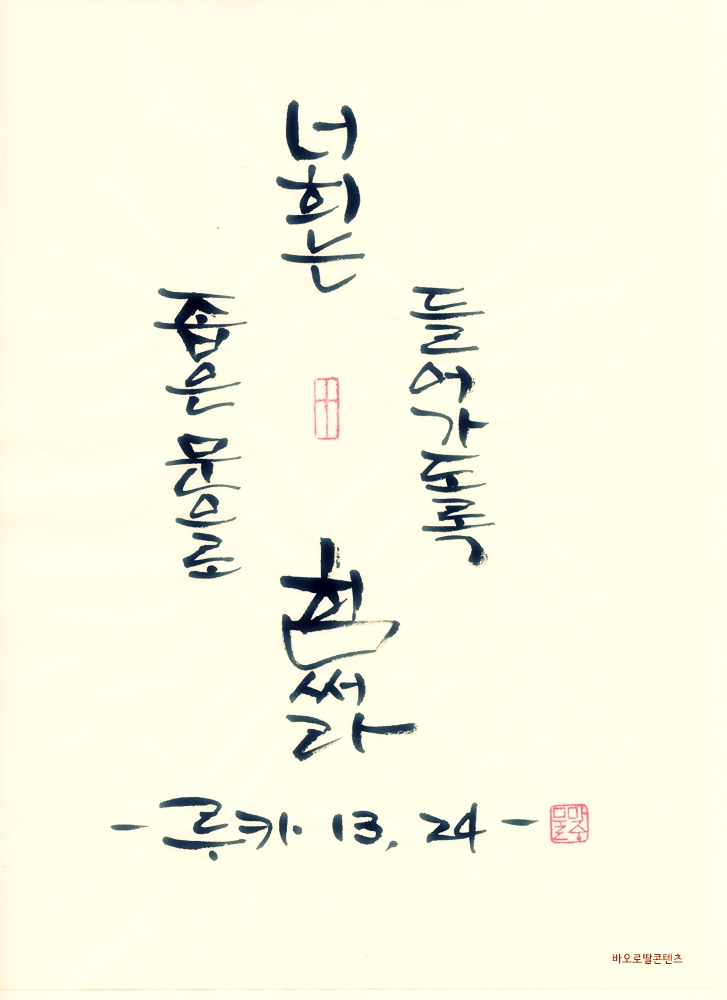 너희는
좁은 문으로
들어가도록
힘써라
- 루카. 13, 24 -
바오로딸콘텐츠